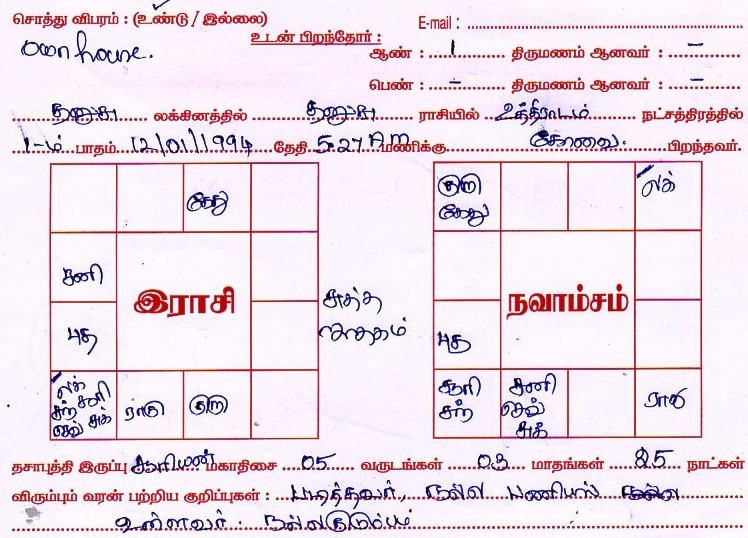 சொத்து விபரம் : (உண்டு / இல்லை)
E-mail :
own house.
உடன் பிறந்தோர் :
ஆண் : 1 திருமணம் ஆனவர் : –
பெண் : – திருமணம் ஆனவர் : –
தனுசு லக்கினத்தில் தனுசு ராசியில் உத்திராடம் நட்சத்திரத்தில்
1-ம் பாதம் 12/01/1994 தேதி 5-27 AM மணிக்கு கோவை. பிறந்தவர்.
கேது
சனி
இராசி
புத
லக்
சூரி
சந்
செவ் சுக்
ராகு
குரு
சுத்த
ஜாதகம்
குரு
கேது
லக்
நவாம்சம்
புத
சூரி
சந்
சனி
செவ்
சுக்
ராகு
தசாபுத்தி இருப்பு சூரியன் மகாதிசை 05 வருடங்கள் 03 மாதங்கள் 25 நாட்கள்
விரும்பும் வரன் பற்றிய குறிப்புகள் : படித்தவர், நல்ல பணியில்
உள்ளவர். நல்லகுடும்பம்